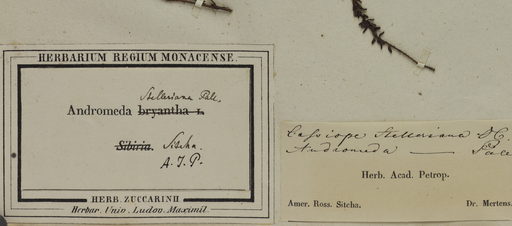 HERBARIUM REGIUM MONACENSE.
Stelleriana Pall.
Andromeda bryantha L.
Sibiria. Sitcha.
A. J. P.
HERB. ZUCCARINII
Herbar. Univ. Ludov. Maximil.
Cassiope Stelleriana DC.
Andromeda — Pall
Herb. Acad. Petrop.
Amer. Ross. Sitcha. Dr. Mertens.